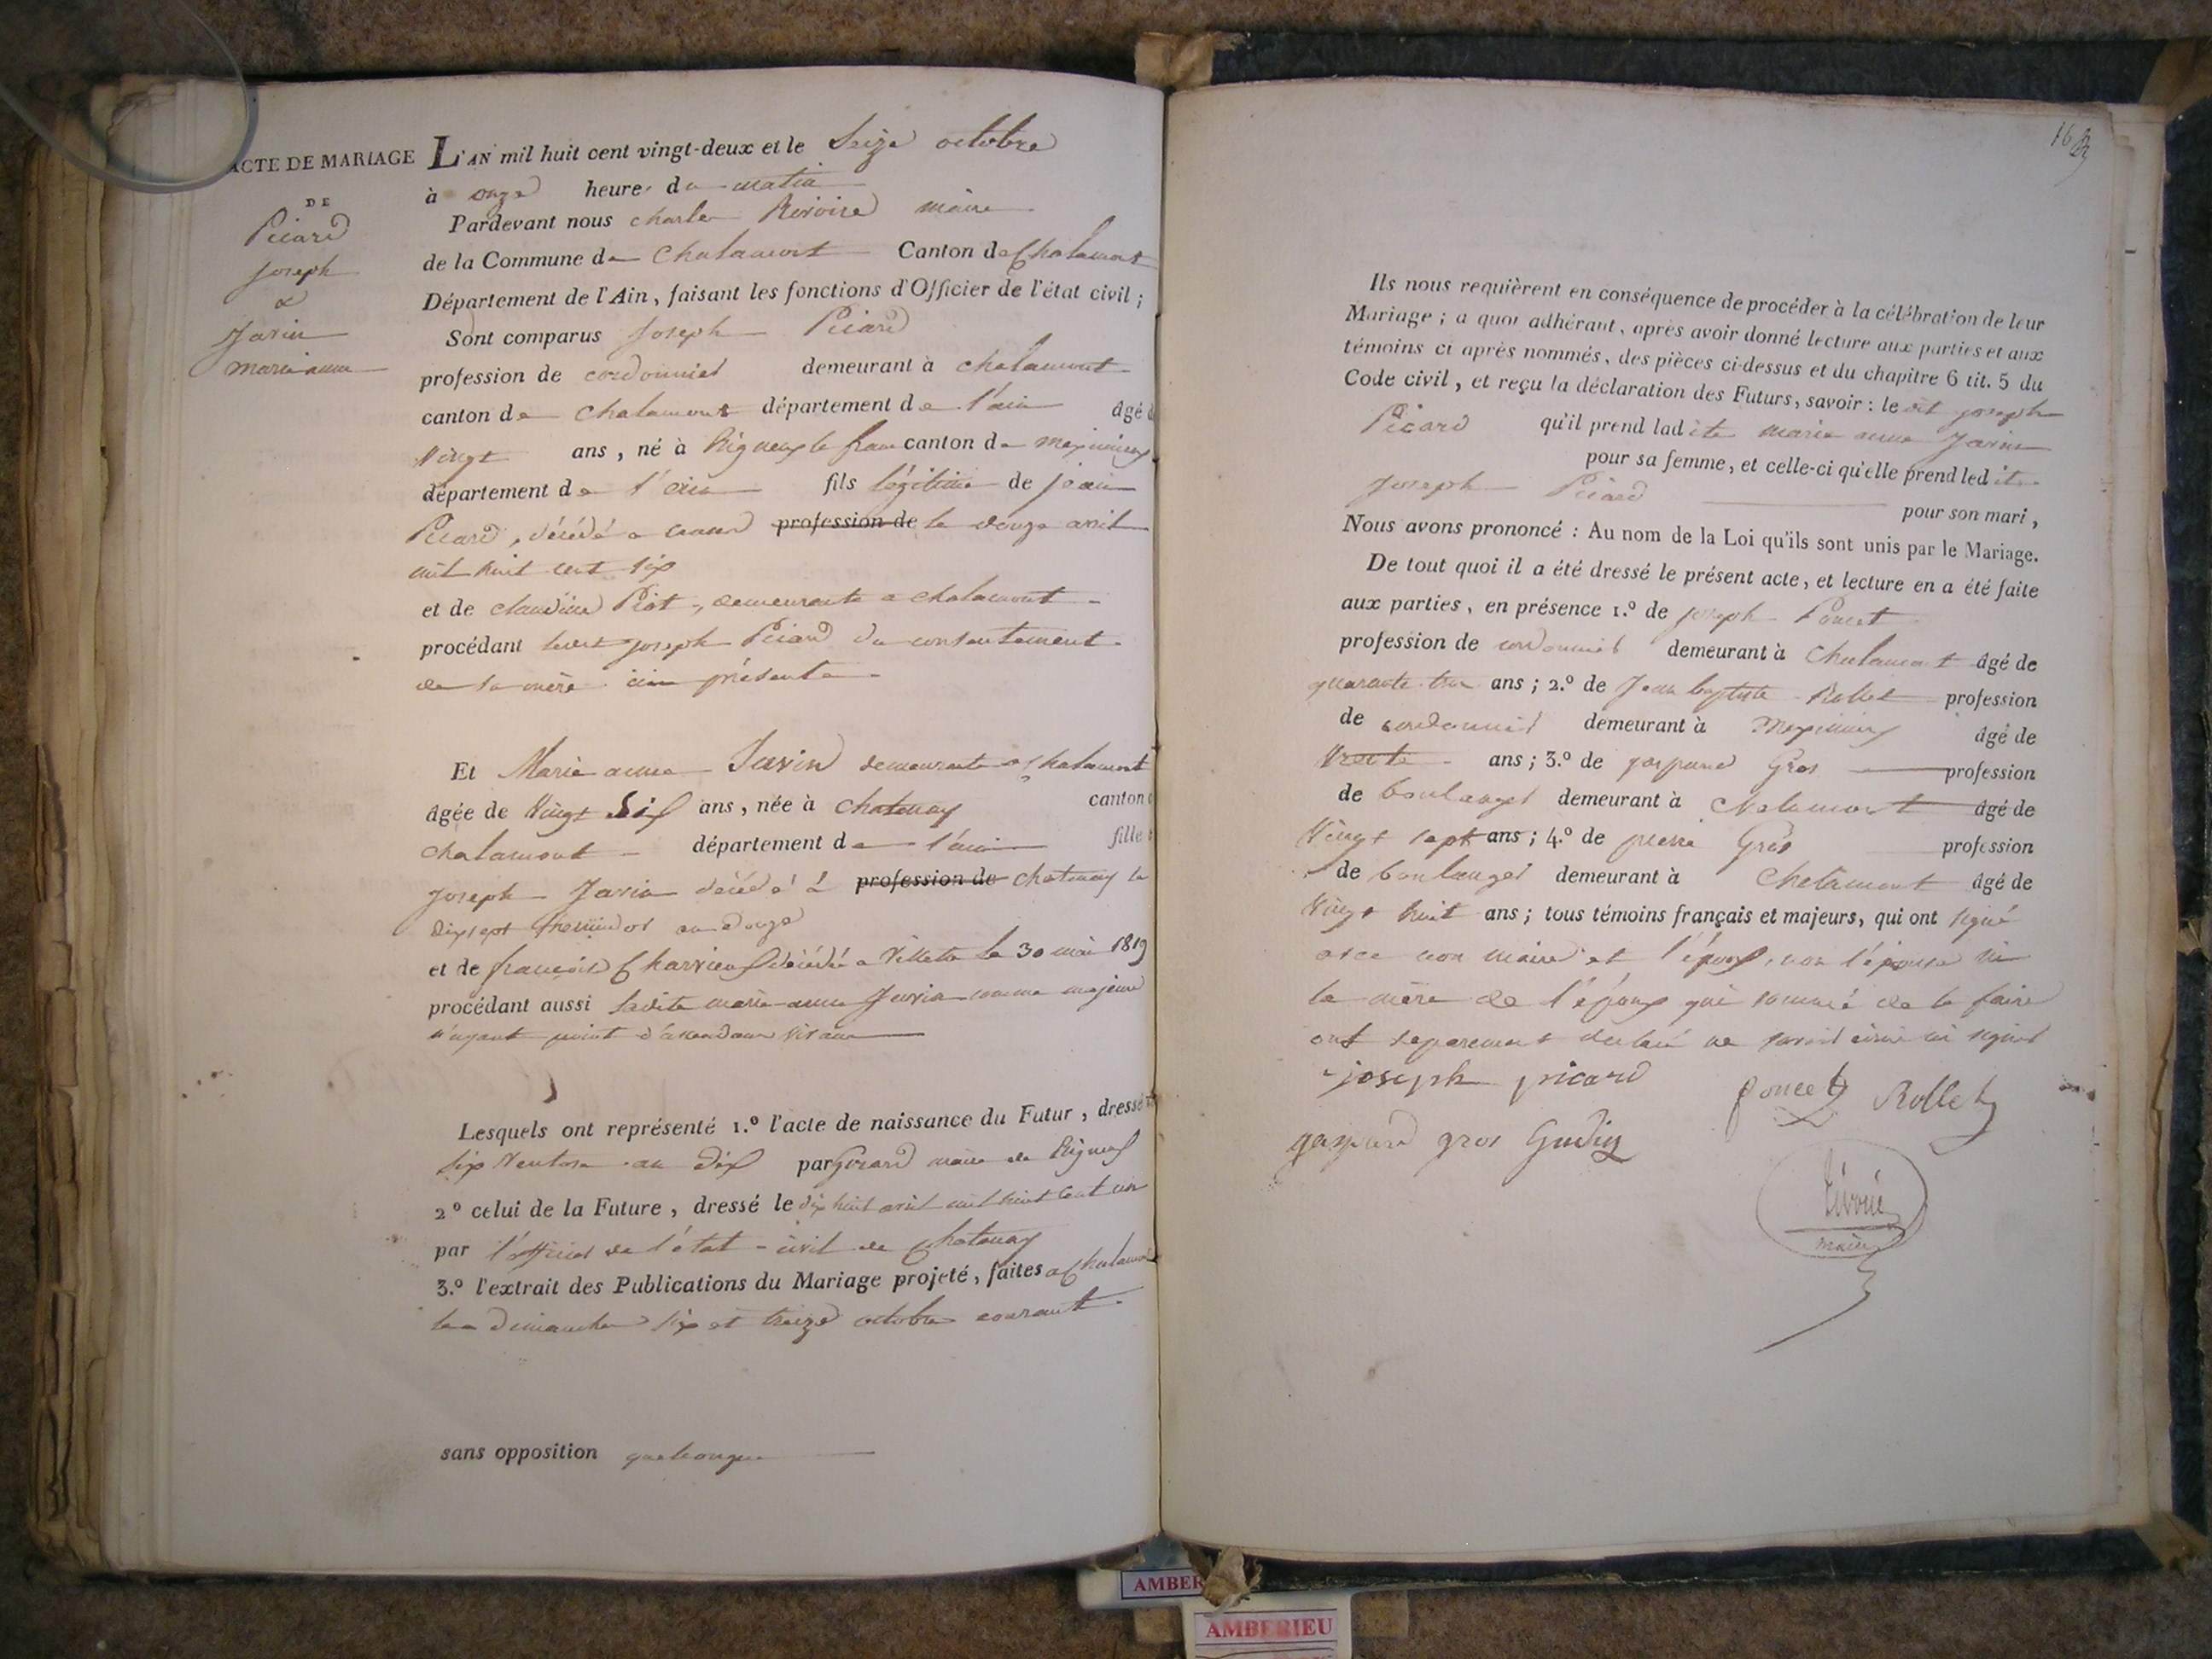 ACTE DE MARIAGE
DE
Picard
Joseph
&
Javin
marie anne
L'AN mil huit cent vingt-deux et le Seize octobre
à onze heure du matin
Pardevant nous charles Rivoire maire
de la Commune de Chalamont Canton de Chalamont
Département de l'Ain, faisant les fonctions d'Officier de l'état civil;
Sont comparus Joseph Picard
profession de cordonnier demeurant à chalamont
canton de Chalamont département de l'ain âgé d
Vingt ans, né à Rigneux le franc canton de meximieux
département de l'ain fils légitime de jean
Picard, décédé a profession de le douze avril
mil huit cent six
et de claudine Piot, demeurante a chalamont
procédant ledit joseph Picard du consentement
de sa mère ici présente
Et Marie anne Javin demeurante a Chalamont
âgée de Vingt Six ans, née à Chatenay canton d
chalamont département de l'ain fille
Joseph Javin décédé à profession de chatenay le
dixsept thermidor an douze
et de françoise Charvieux décédée a Villette le 30 mai 1819
procédant aussi ladite marie anne Javin comme majeure
n'ayant point d'ascendans vivans
Lesquels ont représenté 1.º l'acte de naissance du Futur, dressé le
six Ventose an dix par Girard maire de Rigneux
2º celui de la Future, dressé le dix huit avril mil huit cent un
par l'officier de l'état-civil de Chatenay
3.º l'extrait des Publications du Mariage projeté, faites a Chalamont
les dimanches six et treize octobre courant
sans opposition quelconque
16
Ils nous requièrent en conséquence de procéder à la célébration de leur
Mariage; a quoi adhérant, après avoir donné lecture aux parties et aux
témoins ci après nommés, des pièces ci-dessus et du chapitre 6 tit. 5 du
Code civil, et reçu la déclaration des Futurs, savoir: le dit joseph
Picard qu'il prend ladite marie anne Javin
pour sa femme, et celle-ci qu'elle prend ledit
Joseph Picard pour son mari,
Nous avons prononcé: Au nom de la Loi qu'ils sont unis par le Mariage.
De tout quoi il a été dressé le présent acte, et lecture en a été faite
aux parties, en présence 1.º de joseph Poncet
profession de cordonnier demeurant à Chalamont âgé de
quarante trois ans; 2.º de Jean baptiste Rollet profession
de cordonnier demeurant à Meximieux âgé de
trente ans; 3.º de gaspard Gros profession
de boulanger demeurant à Chalamont âgé de
Vingt sept ans; 4.º de pierre Gros profession
de boulanger demeurant à Chalamont âgé de
Vingt huit ans; tous témoins français et majeurs, qui ont signé
avec nous maire et l'époux, non l'épouse ni
la mère de l'époux qui sommé de le faire
ont separement declaré ne savoir écrire ni signer
joseph picard
poncet Rollet
gaspard gros
maire
AMBER
AMBERIEU